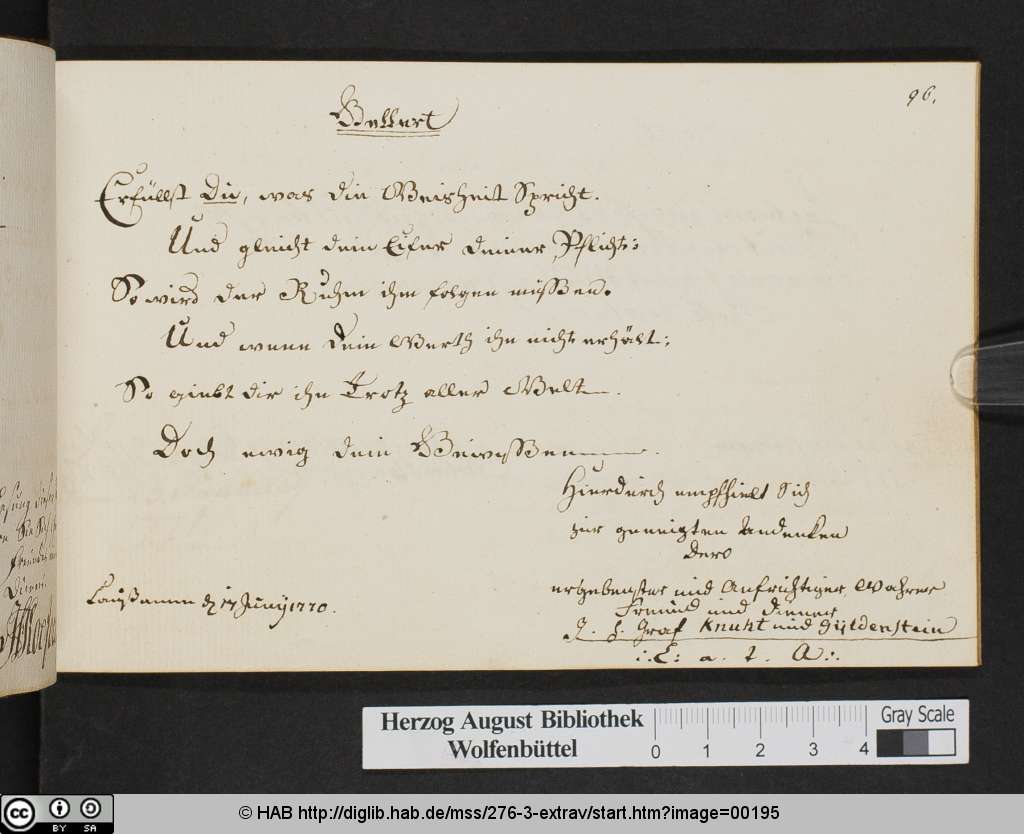 96.
Gellert
Erfüllst Du, was die Weisheit Spricht.
Und gleicht dein Eifer deiner Pflicht:
So wird der Ruhm ihm folgen müssen.
Und wenn dein Werth ihn nicht erhält;
So giebt dir ihn Trotz aller Welt.
Doch ewig dein Gewissen.
Hierdurch empfhielt Sich
zur geneigten Andenken
Dero
ergebenster und Aufrichtiger, Wahrer
Freund und diener
Graf Knuht und Gyldenstein
Laußanne d 17 Juny 1770.
Herzog August Bibliothek
Wolfenbüttel
0 1 2 3 4
Gray Scale
cc BY SA
© HAB http://diglib.hab.de/mss/276-3-extrav/start.htm?image=00195